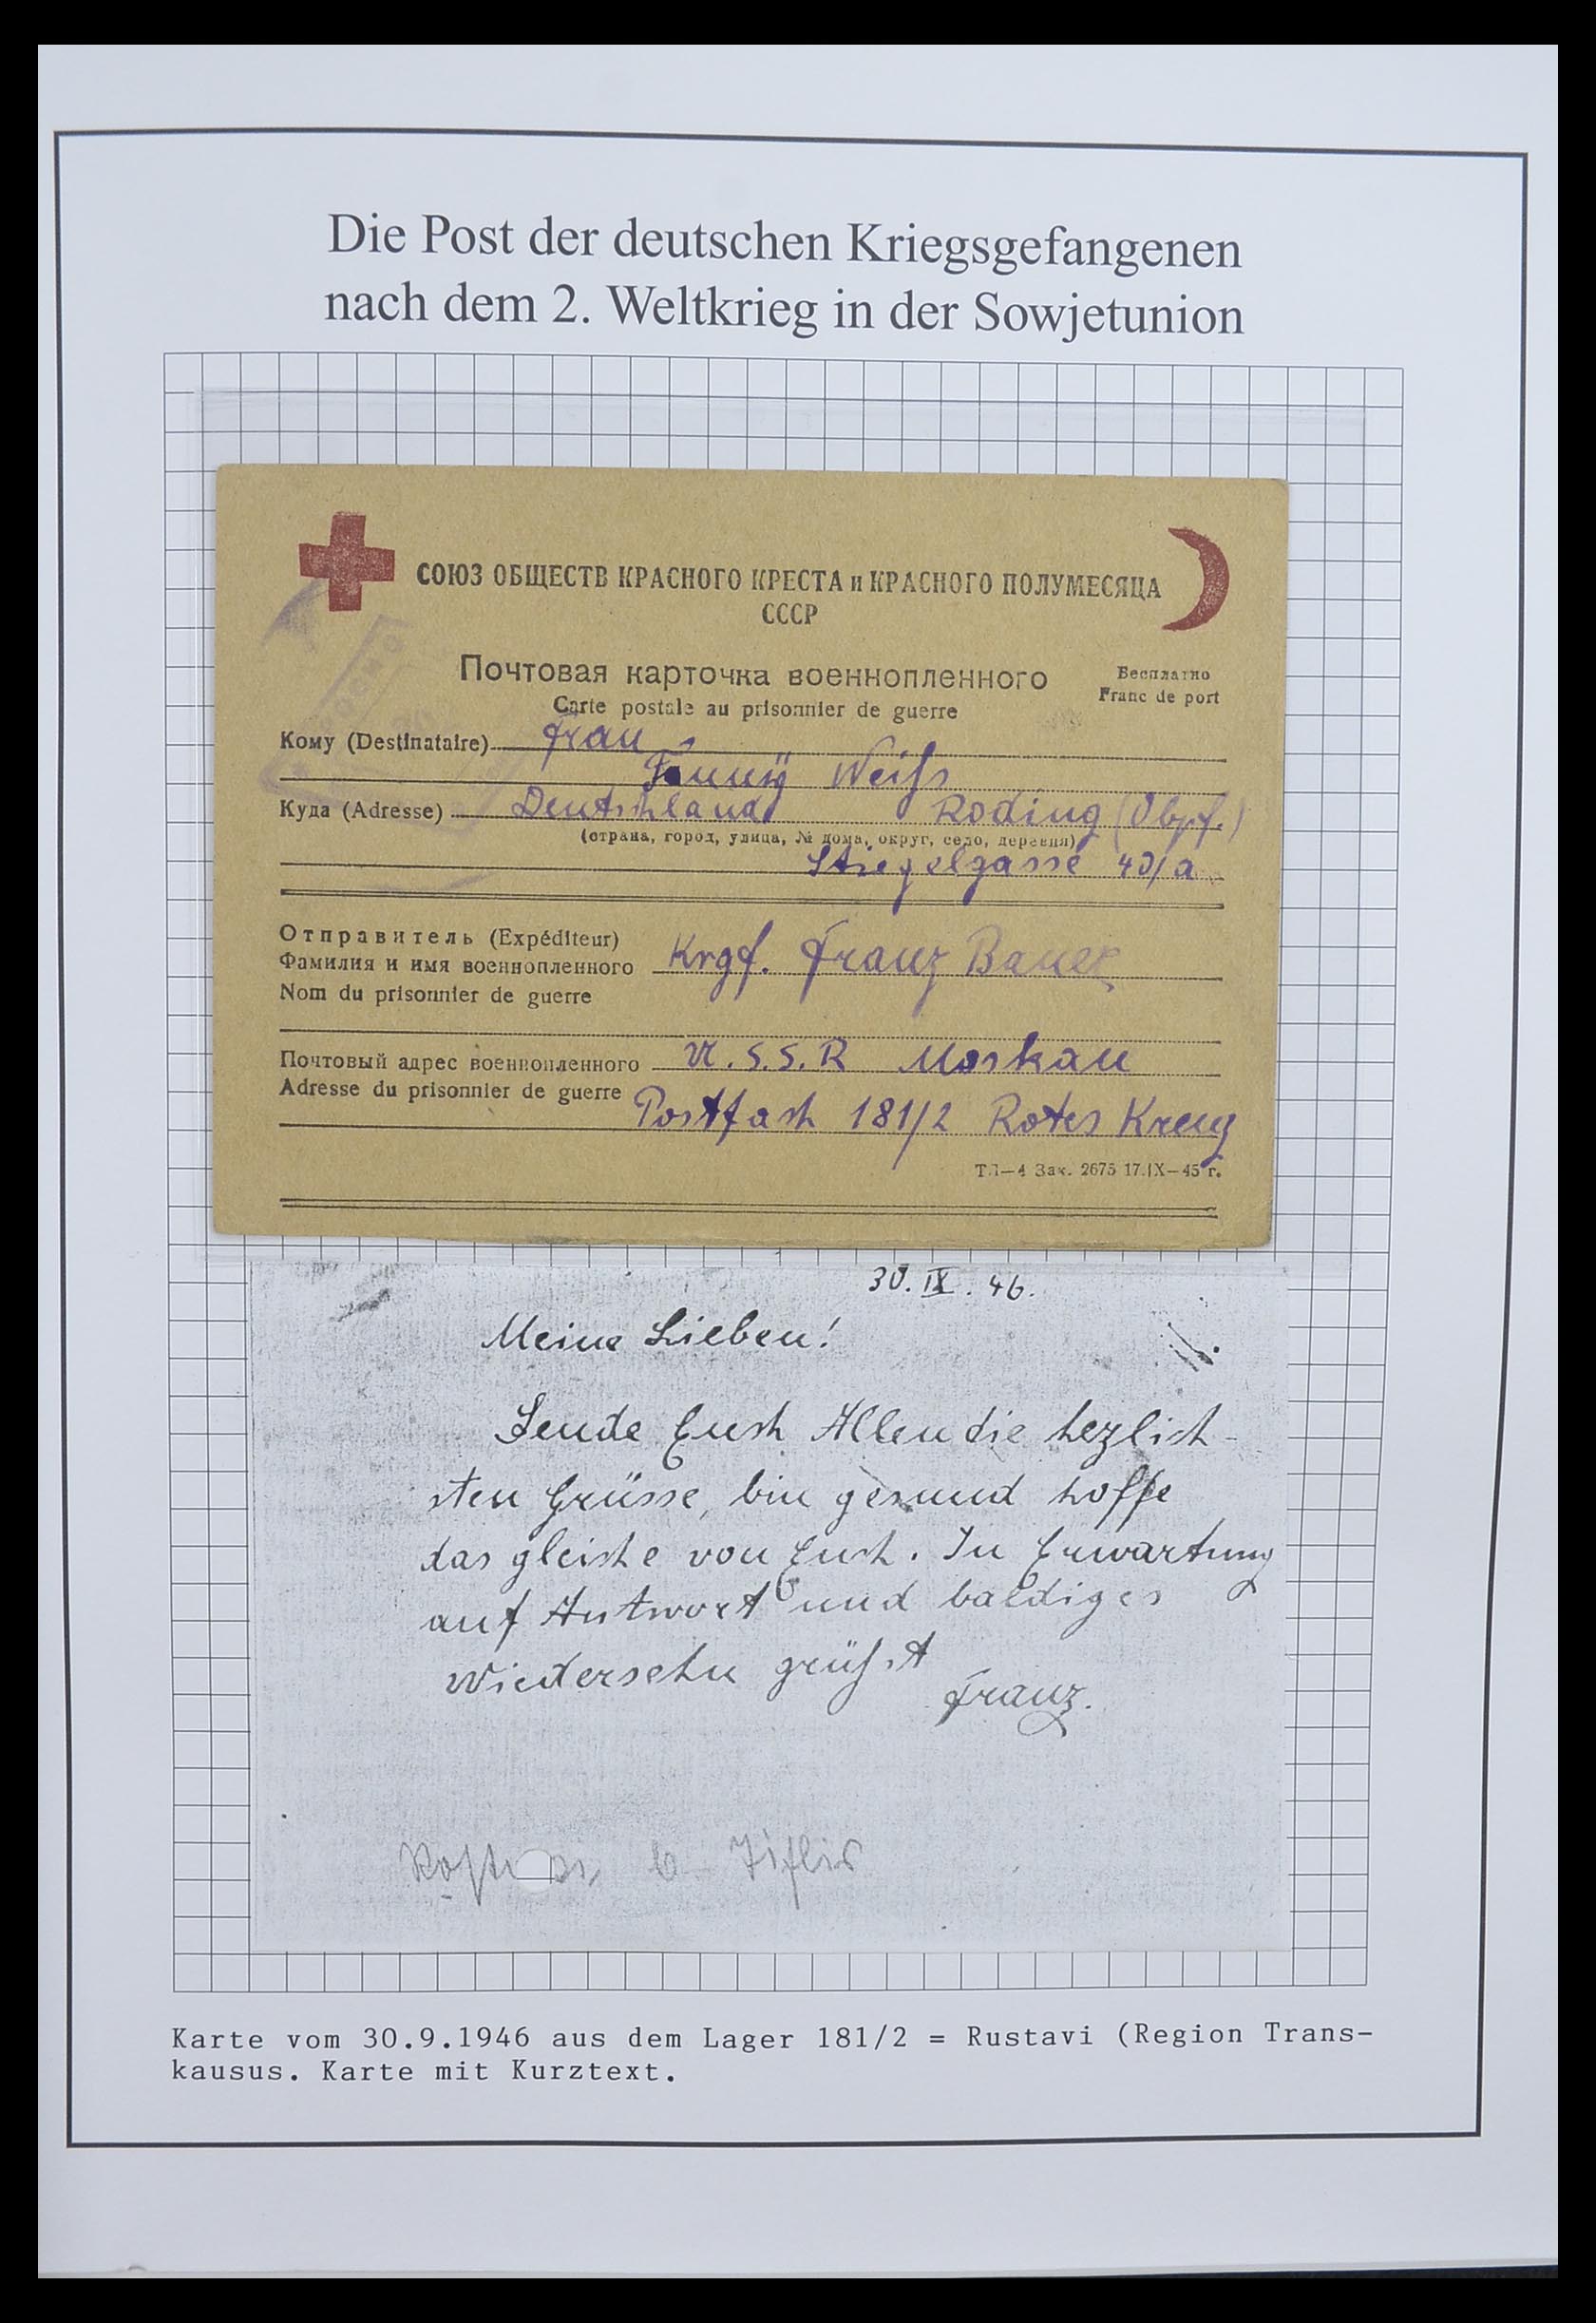 Die Post der deutschen Kriegsgefangenen
nach dem 2. Weltkrieg in der Sowjetunion
СОЮЗ ОБЩЕСТВ КРАСНОГО КРЕСТА и КРАСНОГО ПОЛУМЕСЯЦА
СССР
Почтовая карточка военнопленного
Бесплатно
Carte postale au prisonnier de guerre
Franc de port
Кому (Destinataire) Frau
Fanny Weiss
Куда (Adresse) Deutschland Roding (Obpf.)
(страна, город, улица, № дома, округ, село, деревня)
40/a
Отправитель (Expéditeur)
Фамилия и имя военнопленного Krgf. Franz Bauer
Nom du prisonnier de guerre
Почтовый адрес военнопленного U.S.S.R Moskau
Adresse du prisonnier de guerre Postfach 181/2 Rotes Kreuz
ТЛ—4 Зак. 2675 17.IX—45 г.
30. IX. 46.
Meine Lieben!
Sende Euch Allen die hezlich-
sten Grüsse, bin gesund hoffe
das gleiche von Euch. In Erwartung
auf Antwort und baldiges
Wiedersehn grüßt
Franz.
b. Tiflis
Karte vom 30.9.1946 aus dem Lager 181/2 = Rustavi (Region Trans-
kausus. Karte mit Kurztext.